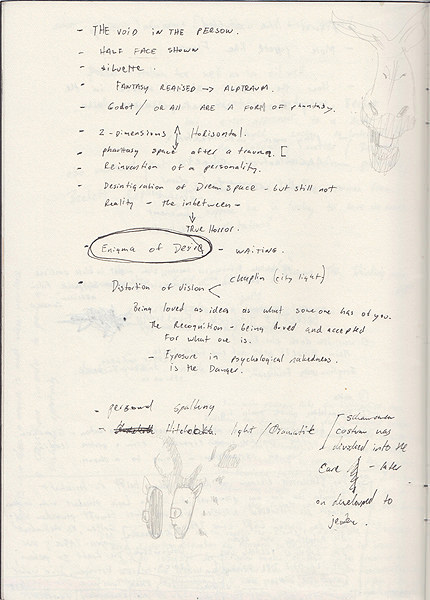 - THE VOID IN THE PERSON.
- HALF FACE SHOWN
- silvette.
- FANTASY REALISED → ALPTRAUM.
- Godot / OR All ARE A FORM OF phantasy.
- 2-dimensions Horisontal.
- phantasy space after a trauma. [
- Reinvention of a personality.
- Desintigration of Dream space - but still not
Reality - the inbetween -
↓
TRUE HORROR.
- Enigma of Desire - WAITING.
- Distortion of vision < chaplin (city light)
• Being loved as idea as what someone has of you.
The Recognition - being loved and accepted
For what one is.
- Exposure in psychological nakedness.
is the Danger.
-
- Hitchcock light / Dramatik
costum was
devided into the
- later
on developed to